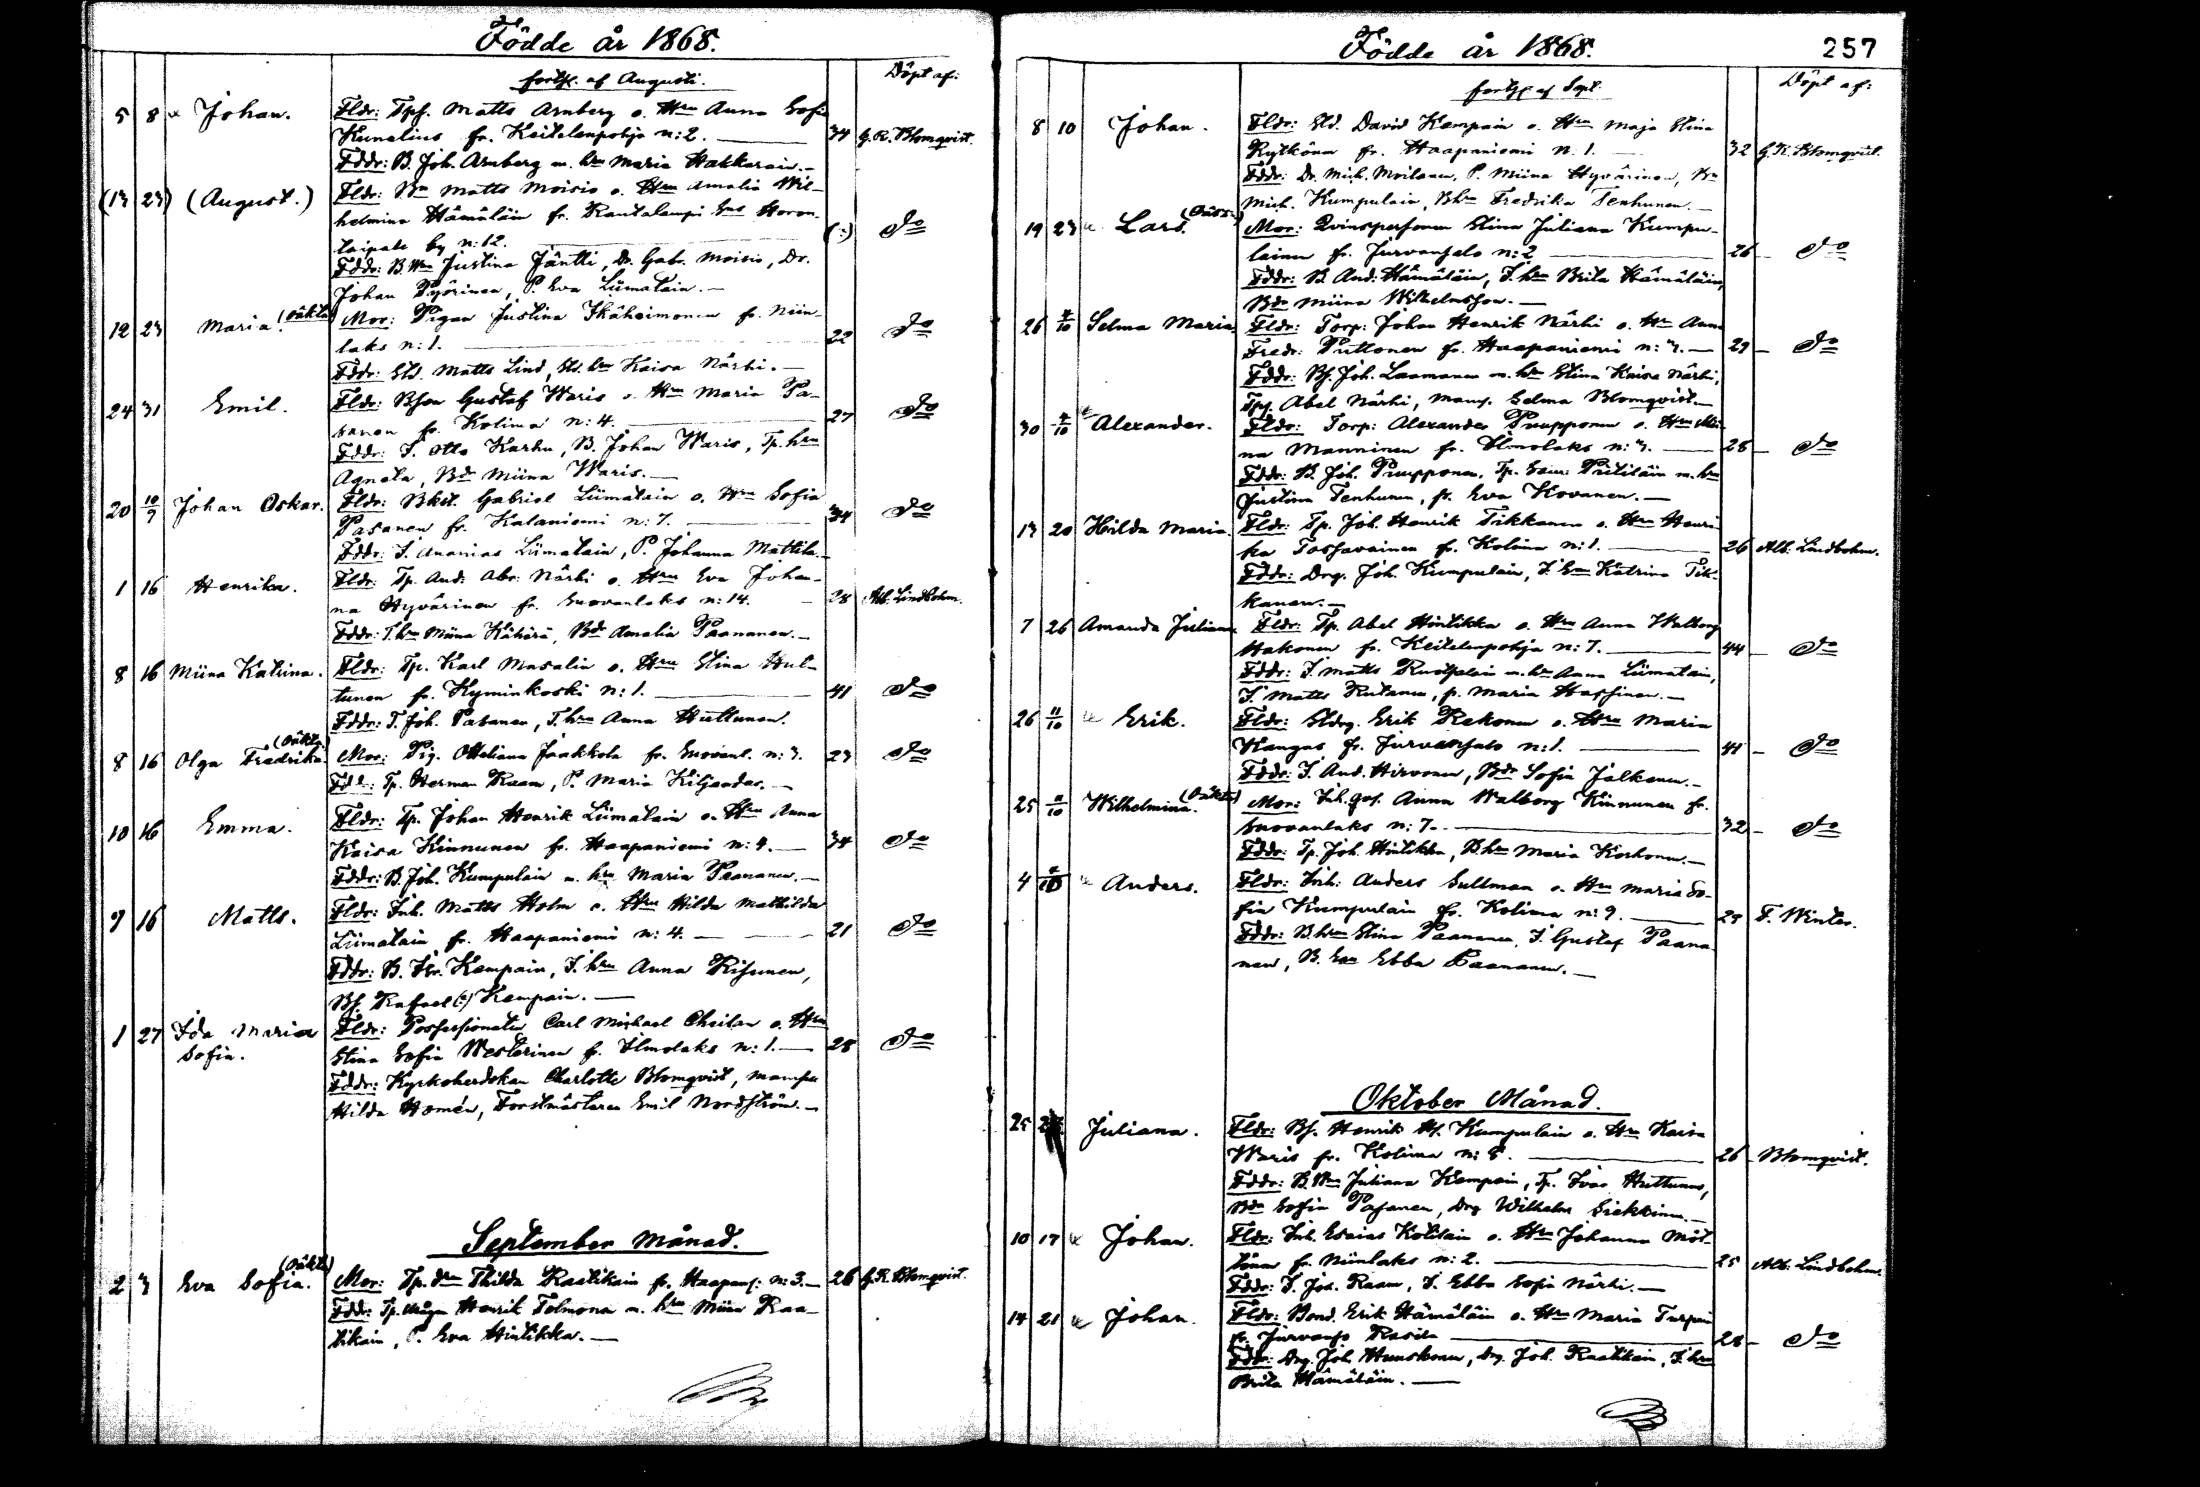 Födde år 1868.
forts. af Augusti.
Döpt af:
5 8 Johan. Fldr: Tpf. Matts Arnberg o. Hru Anna Sofia
Kunelius fr. Keitelepohja n:2. 34 G. R. Blomqvist.
Fddr: B. Joh. Arnberg m. hru Maria Hakkarain.
(13 23) (August.) Fldr: Bn Matts Moisio o. Hru Amalia Wil-
helmina Hämäläin fr. Rautalampi
by n:12. (:) Do
Fddr: B. Hru Justina Jäntti, Dr. Gabr. Moisio, Dr.
Johan Pyörinen, P. Eva Liimatain.
12 23 Maria. (Oäkta) Mor: Pigan Justina Ikäheimonen fr. Niin-
laks n:1. 22 Do
Fddr: Sld. Matts Lind, Sld. hru Kaisa Närhi.
24 31 Emil. Fldr: Bson Gustaf Waris o. Hru Maria Pa-
sanen fr. Kolima n:4. 27 Do
Fddr: I. Otto Karhu, B. Johan Waris, Tp. hru
Agneta, Bdr Miina Waris.
20 10/9 Johan Oskar. Fldr: Bkst. Gabriel Liimatain o. Hru Sofia
Pasanen fr. Kalaniemi n:7. 34 Do
Fddr: I. Ananias Liimatain, P. Johanna Mattila.
1 16 Henrika. Fldr: Tp. And. Abr. Närhi o. Hru Eva Johan-
na Hyvärinen fr. Suovanlaks n:14. 28 Alb. Lindbohm.
Fddr: T. hru Miina Kähärä, Bdr Amalia Paananen.
8 16 Miina Katrina. Fldr: Tp. Karl Masalin o. Hru Stina Hut-
tunen fr. Kyminkoski n:1. 41 Do
Fddr: T. Joh. Pasanen, T. hru Anna Huttunen.
8 16 Olga Fredrika. (Oäkta) Mor: Pig. Otteliana Jaakkola fr. Suovanl. n:3. 23 Do
Fdd: Tp. Herman Raam, P. Maria Kiljander.
10 16 Emma. Fldr: Tp. Johan Henrik Liimatain o. Hru Anna
Kaisa Kinnunen fr. Haapaniemi n:4. 34 Do
Fddr: B. Joh. Kumpulain m. hru Maria Paananen.
9 16 Matts. Fldr: Inh. Matts Holm o. Hru Hilda Mathilda
Liimatain fr. Haapaniemi n:4. 21 Do
Fddr: B. Kempain, I. hru Anna
Bs. Rafael (:) Kempain.
1 27 Ida Maria Fldr: Possessionaten Carl Michael Cheilan o. Hru
Sofia. Stina Sofia Westerinen fr. Ilmolaks n:1. 28 Do
Fddr: Kyrkoherdskan Charlotte Blomqvist, mamsell
Hilda Homén, Forstmästaren Emil Nordström.
September månad.
2 3 Eva Sofia. (Oäkta) Mor: Tp. dr. Thilda Raatikain fr. Haapans. n:3. 26 G. R. Blomqvist.
Fdd: Tp. Henrik Tolmona m. hru Miina Raa-
tikain, P. Eva Hintikka.
Födde år 1868.
257
forts. af Sept.
Döpt af:
8 10 Johan. Fldr: Sld. David Kempain o. Hru Maja Stina
Rytkönen fr. Haapaniemi n. 1. 32 G. R. Blomqvist.
Fddr: Dr. Mich. Moilanen, P. Miina Hyvärinen, Bn
Mich. Kumpulain, Bhru Fredrika Tenhunen.
19 23 Lars. Mor: Qvinspersonen Stina Juliana Kumpu-
lainen fr. Jurvansalo n:2 26 Do
Fddr: B. And. Hämäläin, I. hru Brita Hämäläin,
Bdr Miina Wilhelmsson.
26 4/10 Selma Maria. Fldr: Torp: Johan Henrik Närhi o. Hru Anna
Fredr: Puttonen fr. Haapaniemi n:3. 29 Do
Fddr: Bs. Joh. Laamanen m. hru Stina Kaisa Närhi,
Tps. Abel Närhi, Mams. Selma Blomqvist.
30 4/10 Alexander. Fldr: Torp: Alexander Puupponen o. Hru Mii-
na Manninen fr. Ilmolaks n:3. 28 Do
Fddr: B. Joh. Puupponen, Tp. m. hru
Justina Tenhunen, p. Eva Kovanen.
13 20 Hilda Maria. Fldr: Tp. Joh. Henrik Tikkanen o. Hru Henri-
ka Tossavainen fr. Kolima n:1. 26 Alb. Lindbohm.
Fddr: Drg. Joh. Kumpulain, Katrina Tik-
kanen.
7 26 Amanda Juliana Fldr: Tp. Abel Hintikka o. Hru Anna Walborg
Hakonen fr. Keitelepohja n:7. 44 Do
Fddr: I. Matts m. hru Anna Liimatain,
I. Matts Rutanen, p. Maria Hassinen.
26 11/10 Erik. Fldr: Sldrg. Erik Rekonen o. Hru Maria
Kangas fr. Jurvansalo n:1. 41 Do
Fddr: I. And. Hirvonen, Bdr Sofia Jalkanen.
25 11/10 Wilhelmina. (Oäkta) Mor: Inh. Anna Walborg Kinnunen fr.
Suovanlaks n:7. 32 Do
Fddr: Tp. Joh. Hintikka, B. hru Maria Korhonen.
4 Anders. Fldr: Inh: Anders Sullman o. Hru Maria So-
fia Kumpulain fr. Kolima n:9. 29 F. Winter.
Fddr: B. hru Stina Paananen, I. Gustaf Paana-
nen, B. Ebba Paananen.
Oktober Månad.
25 Juliana. Fldr: Bs. Henrik Kumpulain o. Hru Kaisa
Waris fr. Kolima n:8. 26 Blomqvist.
Fddr: B. Hru Juliana Kempain, Tp. Ivar Huttunen,
Bdr Sofia Pasanen, Drg Wilhelm Siekkinen.
10 17 Johan. Fldr: Inh. Esaias Kotilain o. Hru Johanna Möt-
tönen fr. Niinlaks n:2. 25 Alb. Lindbohm.
Fddr: I. Joh. Raam, I. Ebba Sofia Närhi.
14 21 Johan. Fldr: Bond. Erik Hämäläin o. Hru Maria Turpein
fr. Jurvans. Rasila 28 Do
Fddr: Drg. Joh. Hunskonen, Drg. Joh. Raatikain, I. hru
Brita Hämäläin.